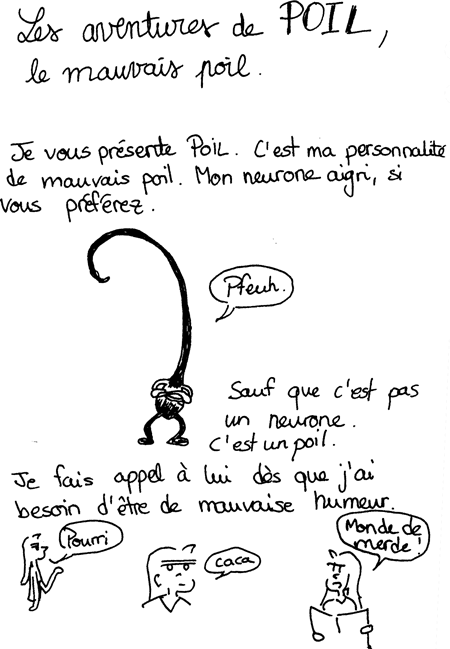 Les aventures de POIL,
le mauvais poil.
Je vous présente POIL. C'est ma personnalité
de mauvais poil. Mon neurone aigri, si
vous préférez.
Pfeuh.
Sauf que c'est pas
un neurone.
C'est un poil.
Je fais appel à lui dès que j'ai
besoin d'être de mauvaise humeur.
Pourri
caca
Monde de
merde !